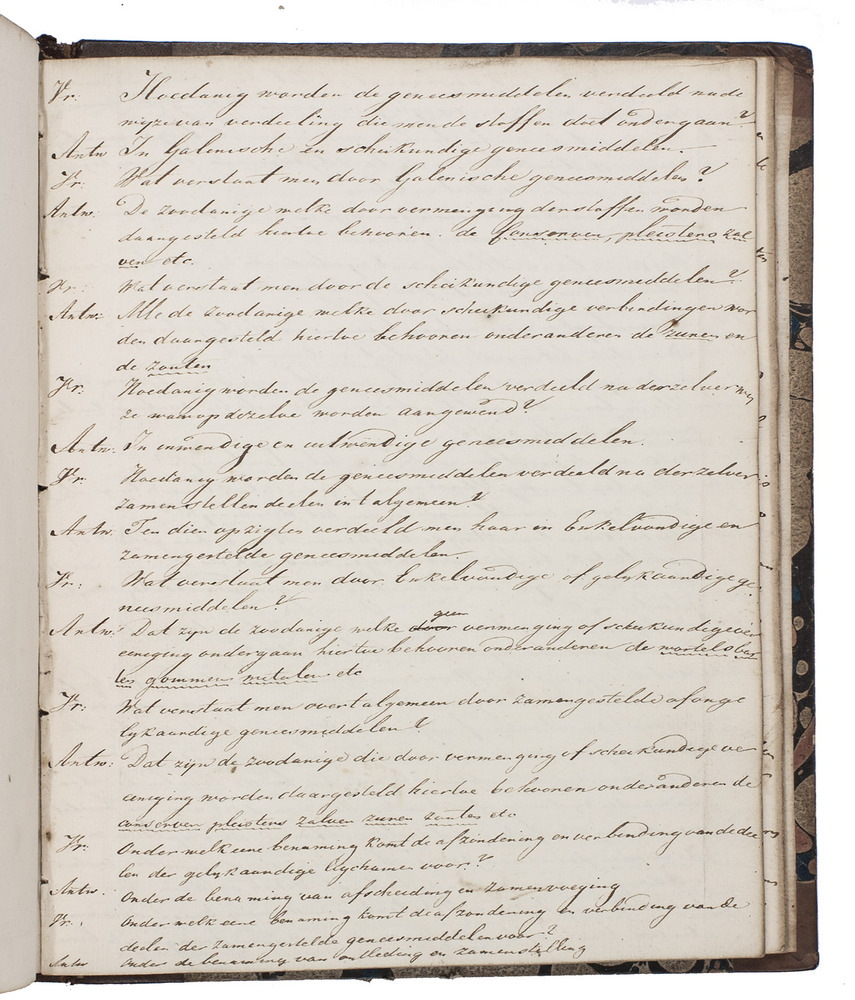 Vr: Hoedanig worden de geneesmiddelen verdeeld na de
wyze van verdeeling die men de stoffen doet ondergaan?
Antw In Galenische en scheikundige geneesmiddelen.
Vr: Wat verstaat men door Galenische geneesmiddelen?
Antw: De zoodanige welke door vermenging der stoffen worden
daargesteld hiertoe behooren. de Conserven, pleisters zal
ven etc.
Vr: Wat verstaat men door de scheikundige geneesmiddelen?
Antw: Alle de zoodanige welke door scheikundige verbindingen wor
den daargesteld hiertoe behooren onderanderen de zuren en
de zouten
Vr: Hoedanig worden de geneesmiddelen verdeeld na derzelver wy
ze waarop dezelve worden aangewend?
Antw: In inwendige en uitwendige geneesmiddelen.
Vr: Hoedanig worden de geneesmiddelen verdeeld na derzelver
zamenstellen deelen int algemeen?
Antw: Ten dien opzigten verdeeld men haar in Enkelvoudige en
zamengestelde geneesmiddelen.
Vr: Wat verstaat men door Enkelvoudige of gelykaardige ge
neesmiddelen?
Antw: Dat zijn de zoodanige welke door geen vermenging of scheikundige ver
eeniging ondergaan hiertoe behooren onderanderen de wortels bas
ten gommen metalen etc
Vr: Wat verstaat men overt algemeen door zamengestelde of onge
lykaardige geneesmiddelen?
Antw: Dat zijn de zoodanige die door vermenging of scheikundige ve
eeniging worden daargesteld hiertoe behooren onderanderen de
conserven pleisters zalven zuren zouten etc
Vr: Onder welk eene benaming komt de afzondering en verbinding van de dee
len der gelykaardige ligchamen voor?
Antw. Onder de benaming van afscheiding en zamenvoeging
Vr: Onder welk eene benaming komt de afzondering en verbinding van de
deelen der zamengestelde geneesmiddelen voor?
Antw Onder de benaming van ontleding en zamenstelling